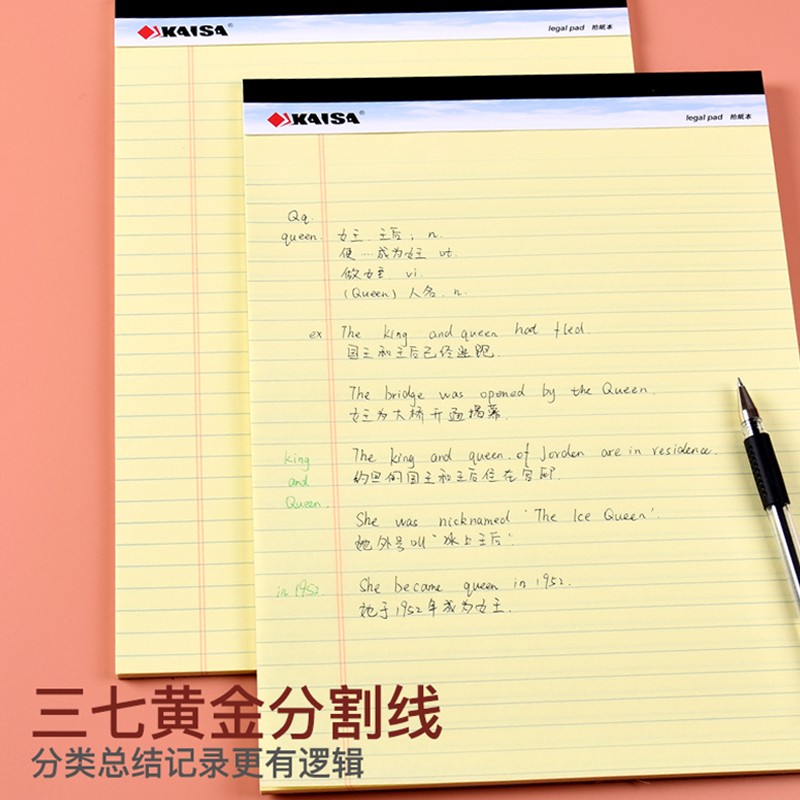 KAISA®
legal pad 拍纸本
KAISA®
legal pad 拍纸本
Qq.
queen. 女王. 王后; n.
使…成为女王 vt.
做女王 vi.
(Queen) 人名. n.
ex The king and queen had fled.
国王和王后已经逃跑.
The bridge was opened by the Queen.
女王为大桥开通揭幕.
king and Queen.
The king and queen of Jorden are in residence.
约旦的国王和王后住在官邸.
She was nicknamed 'The Ice Queen'.
她外号叫"冰上王后".
in 1952. She became queen in 1952.
她于1952年成为女王.
三七黄金分割线
分类总结记录更有逻辑